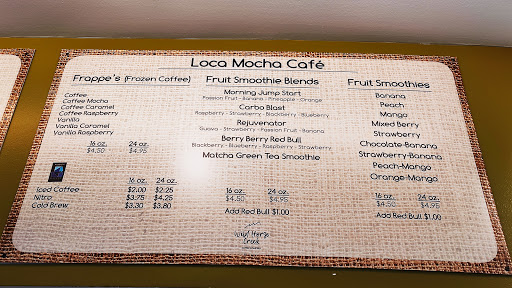 Loca Mocha Café
Frappe's (Frozen Coffee)
Coffee
Coffee Mocha
Coffee Caramel
Coffee Raspberry
Vanilla
Vanilla Caramel
Vanilla Raspberry
16 oz. 24 oz.
$4.50 $4.95
16 oz. 24 oz.
Iced Coffee $2.00 $2.25
Nitro $3.75 $4.25
Cold Brew $3.30 $3.80
Fruit Smoothie Blends
Morning Jump Start
Passion Fruit - Banana - Pineapple - Orange
Carbo Blast
Raspberry - Strawberry - Blackberry - Blueberry
Rejuvenator
Guava - Strawberry - Passion Fruit - Banana
Berry Berry Red Bull
Blackberry - Blueberry - Raspberry - Strawberry
Matcha Green Tea Smoothie
16 oz. 24 oz.
$4.50 $4.95
Add Red Bull $1.00
Wild Horse
Creek
Fruit Smoothies
Banana
Peach
Mango
Mixed Berry
Strawberry
Chocolate-Banana
Strawberry-Banana
Peach-Mango
Orange-Mango
16 oz. 24 oz.
$4.50 $4.95
Add Red Bull $1.00